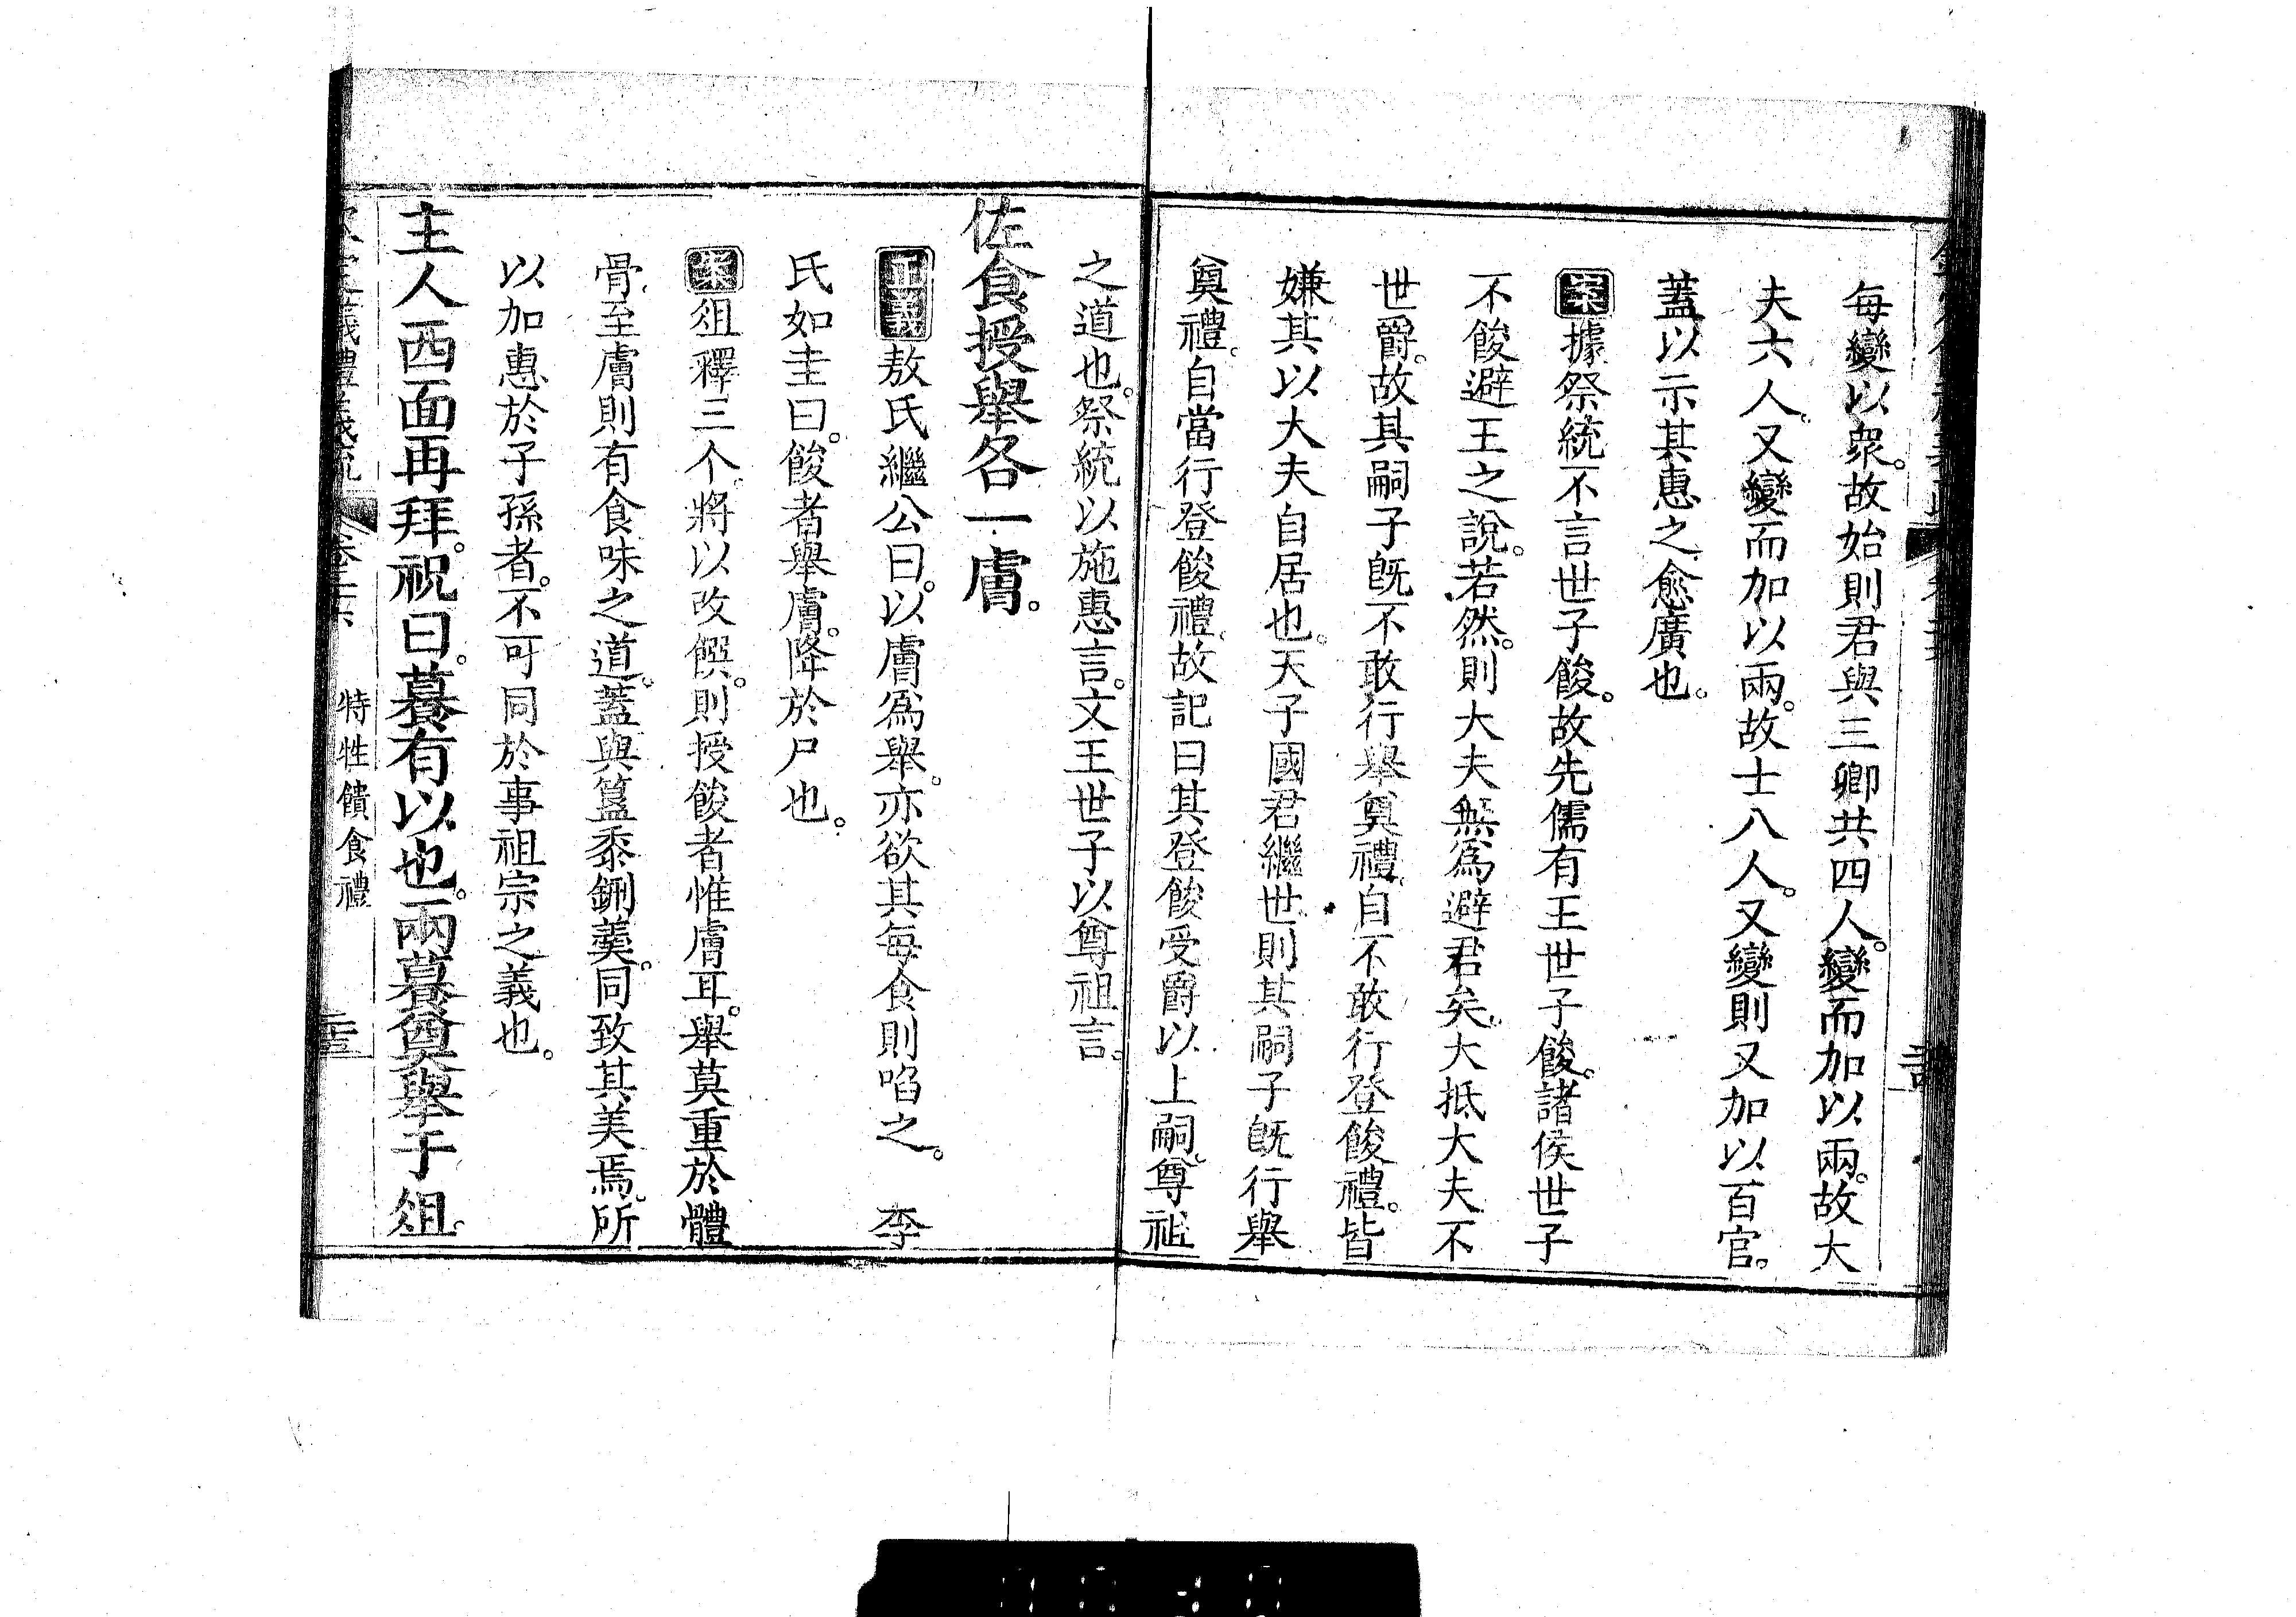 每變以衆。故始則君與三卿共四人。變而加以兩。故大
夫六人。又變而加以兩。故士八人。又變則又加以百官。
蓋以示其惠之愈廣也。
案據祭統不言世子餕。故先儒有王世子餕。諸侯世子
不餕避王之說。若然。則大夫無爲避君矣。大抵大夫不
世爵。故其嗣子旣不敢行舉奠禮。自不敢行登餕禮。皆
嫌其以大夫自居也。天子國君繼世。則其嗣子旣行舉
奠禮。自當行登餕禮。故記曰其登餕受爵以上嗣。尊祖
之道也。祭統以施惠言。文王世子以尊祖言。
佐食授舉各一膚。
正義敖氏繼公曰。以膚爲舉。亦欲其每食則啗之。 李
氏如圭曰。餕者舉膚。降於尸也。
案俎釋三个。將以改饌。則授餕者惟膚耳。舉莫重於體
骨。至膚則有食味之道。蓋與簋黍鉶羹。同致其美焉。所
以加惠於子孫者。不可同於事祖宗之義也。
主人西面再拜。祝曰。䉵有以也。兩䉵奠舉于俎。
特牲饋食禮